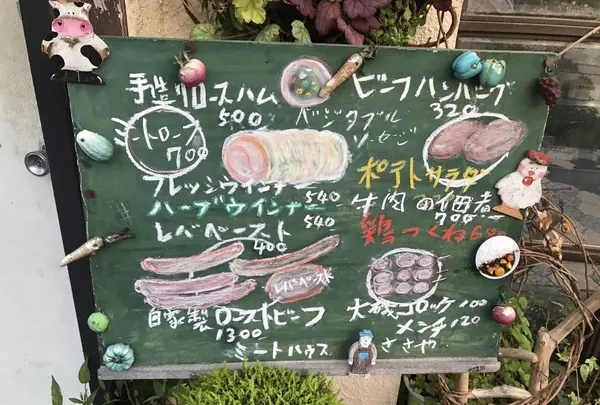 手造りロースハム
500
トロース
700
ベジタブル
ソーセージ
ビーフハンバーグ
320
フレッシュウインナー 540
ハーブウインナー 540
レバーペースト
400
ポテトサラダ
牛肉の佃煮
700
鶏つくね60
レバペースト
自家製ローストビーフ
1300
大磯コロッケ100
メンチ120
ミートハウス ささや